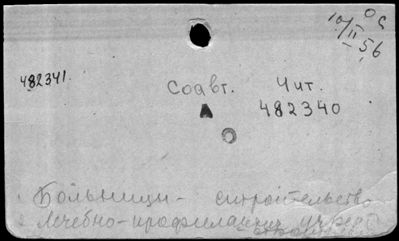 ОС
10/II 56
482341.
Соавт. Чит.
482340
Больницы - строительство
Лечебно-профилакт. учрежд.